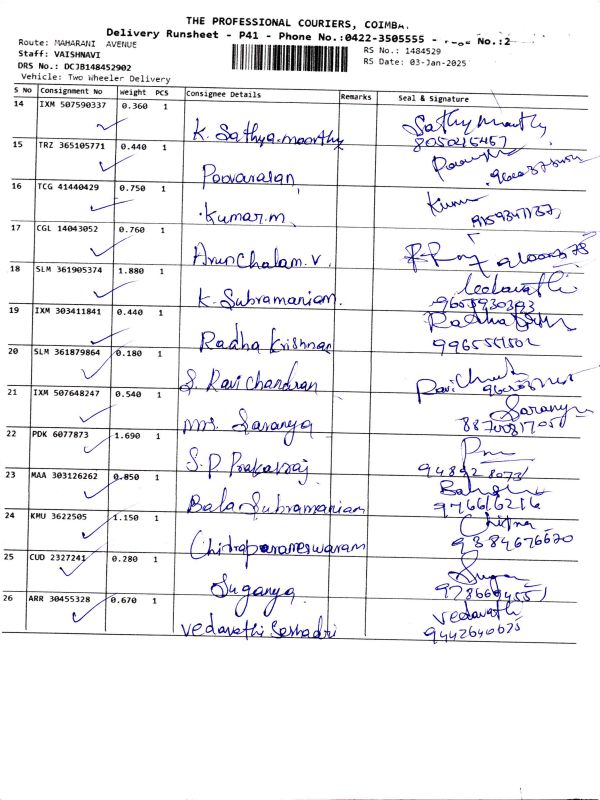 THE PROFESSIONAL COURIERS, COIMBA.
Delivery Runsheet - P41 - Phone No.:0422-3505555 - No.:2
Route: MAHARANI AVENUE
RS No.: 1484529
Staff: VAISHNAVI
RS Date: 03-Jan-2025
DRS No.: DCJB148452902
Vehicle: Two Wheeler Delivery
S No Consignment No Weight PCS Consignee Details Remarks Seal & Signature
14 IXM 507590337 0.360 1
K. Sathya moorthy Sathymoorthy
15 TRZ 365105771 0.440 1
Poovarasan
16 TCG 41440429 0.750 1
Kumar.m. Kumar
17 CGL 14043052 0.760 1
Arunchalam.v.
18 SLM 361905374 1.880 1
K. Subramaniam. Leelavathi
9655930393
19 IXM 303411841 0.440 1
Radha Krishnan
20 SLM 361879864 0.180 1
S. Ravi Chandran
21 IXM 507648247 0.540 1
Mrs. Saranya Saranya
22 PDK 6077873 1.690 1
S.P Prakasraj
23 MAA 303126262 0.850 1
Bala Subramaniam
9766616216
24 KMU 3622505 1.150 1
Chitraparameswaram Chitra
9384676620
25 CUD 2327241 0.280 1
Suganya
26 ARR 30455328 0.670 1
Vedavathi Seshadri Vedavathi
9442640675